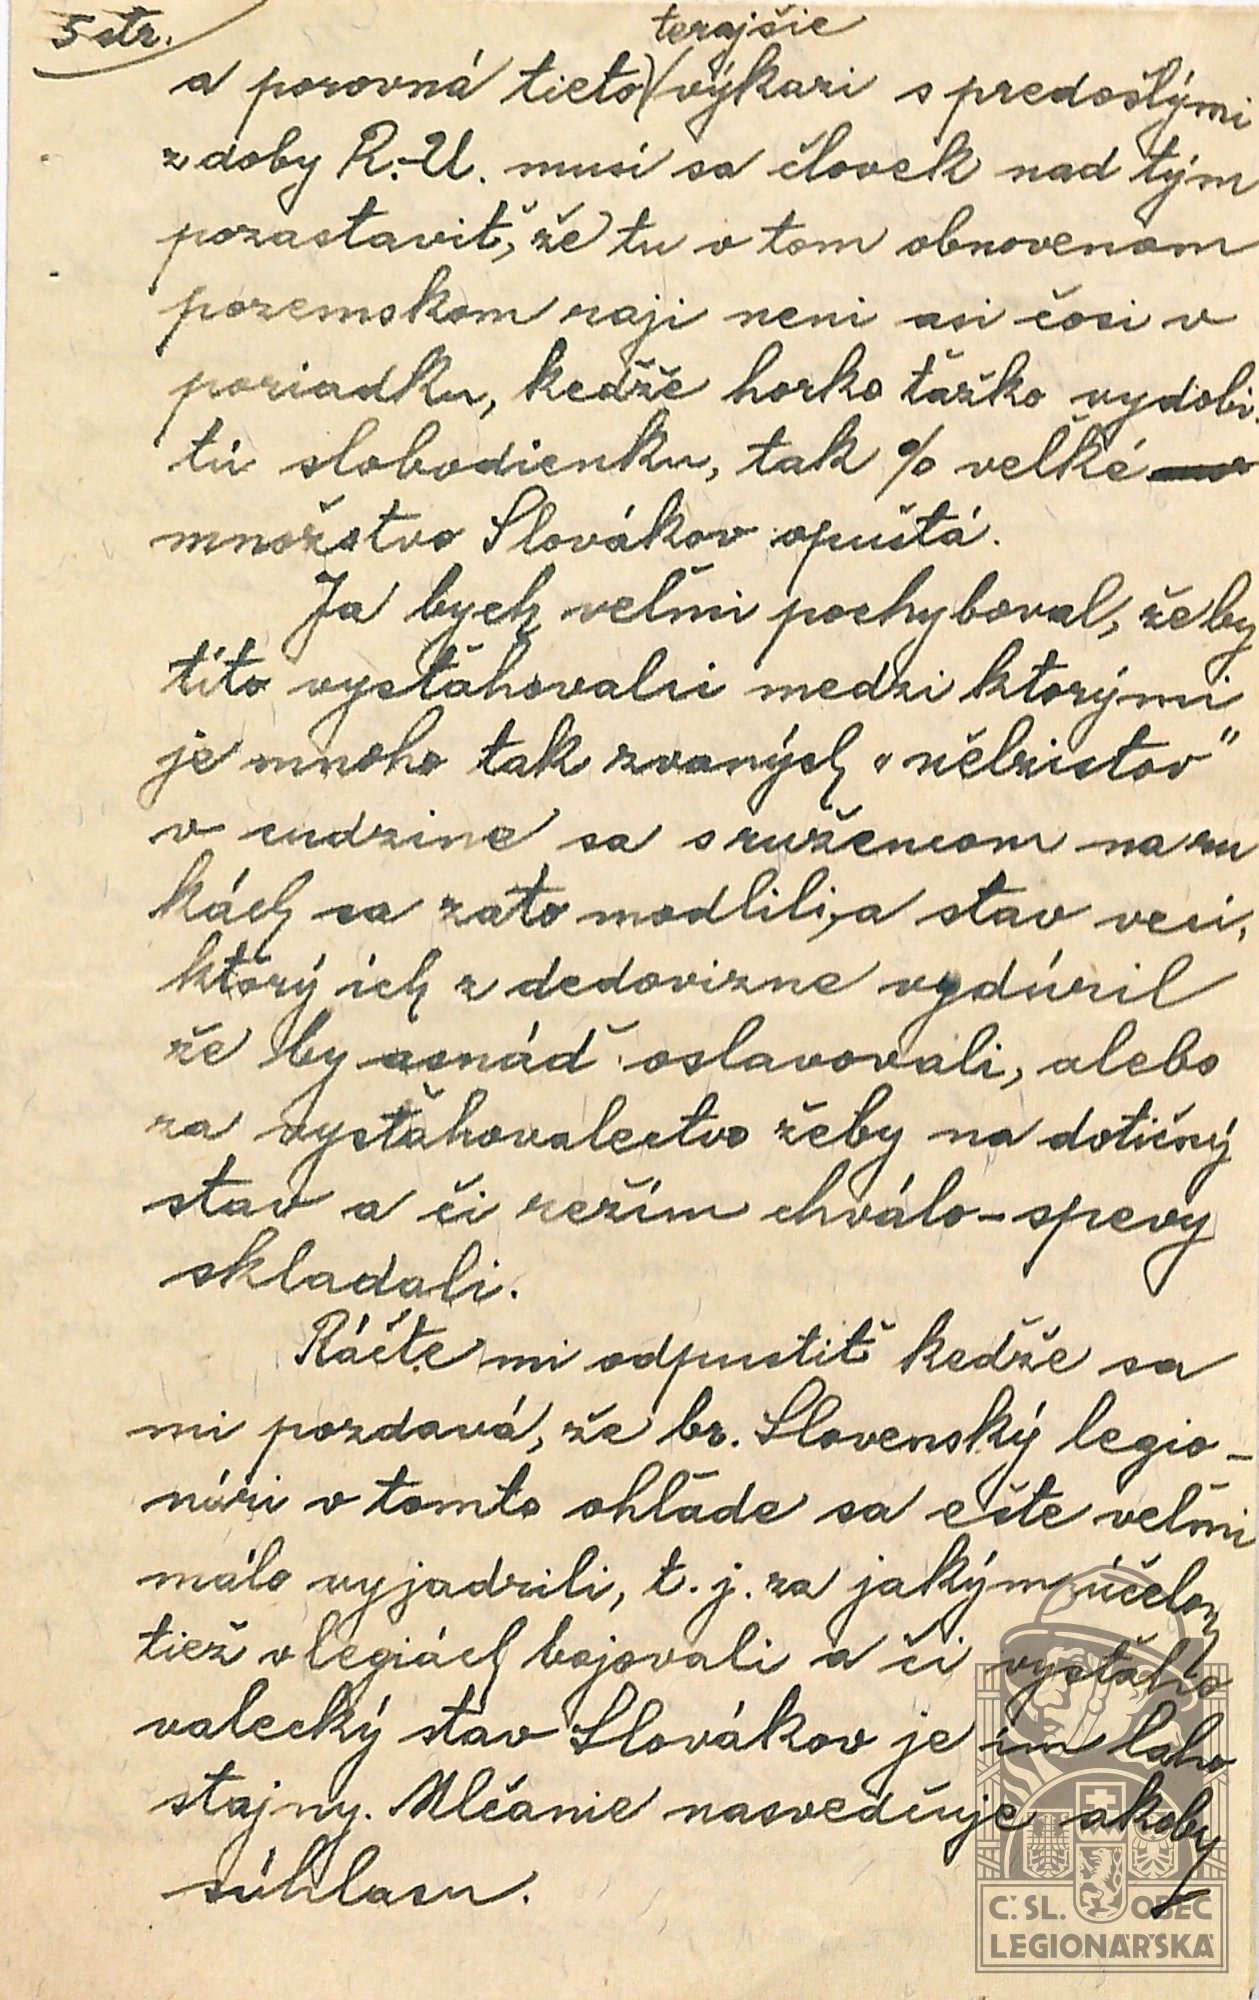 5 str.
terajšie
a porovná tieto výkazi s predošlými
z doby R.-U. musí sa človek nad tým
pozastaviť, že tu v tom obnovenom
pozemskom raji neni asi čosi v
poriadku, kedže horko ťažko vydobi-
tú slobodienku, tak % velké
množstvo Slovákov opuštá.
Ja bych veľmi pochyboval, žeby
títo vysťahovalci medzi ktorými
je mnoho tak zvaných „
v cudzine sa s ružencom na ru
kách sa zato modlili, a stav veci,
ktorý ich z dedovizne vydúril
že by asnáď oslavovali, alebo
za vysťahovalectvo žeby na dotičný
stav a či režím chválo-spevy
skladali.
Ráčte mi odpustiť kedže sa
mi pozdavá, že br. Slovenský legio-
nári v tomto ohľade sa ešte veľmi
málo vyjadrili, t. j. za jakým účelom
tiež v legiách bojovali a či vysťaho
valecký stav Slovákov je im laho
stajny. Mlčanie nasvedčuje akoby
súhlasu.
Č. SL. OBEC
LEGIONÁŘSKÁ